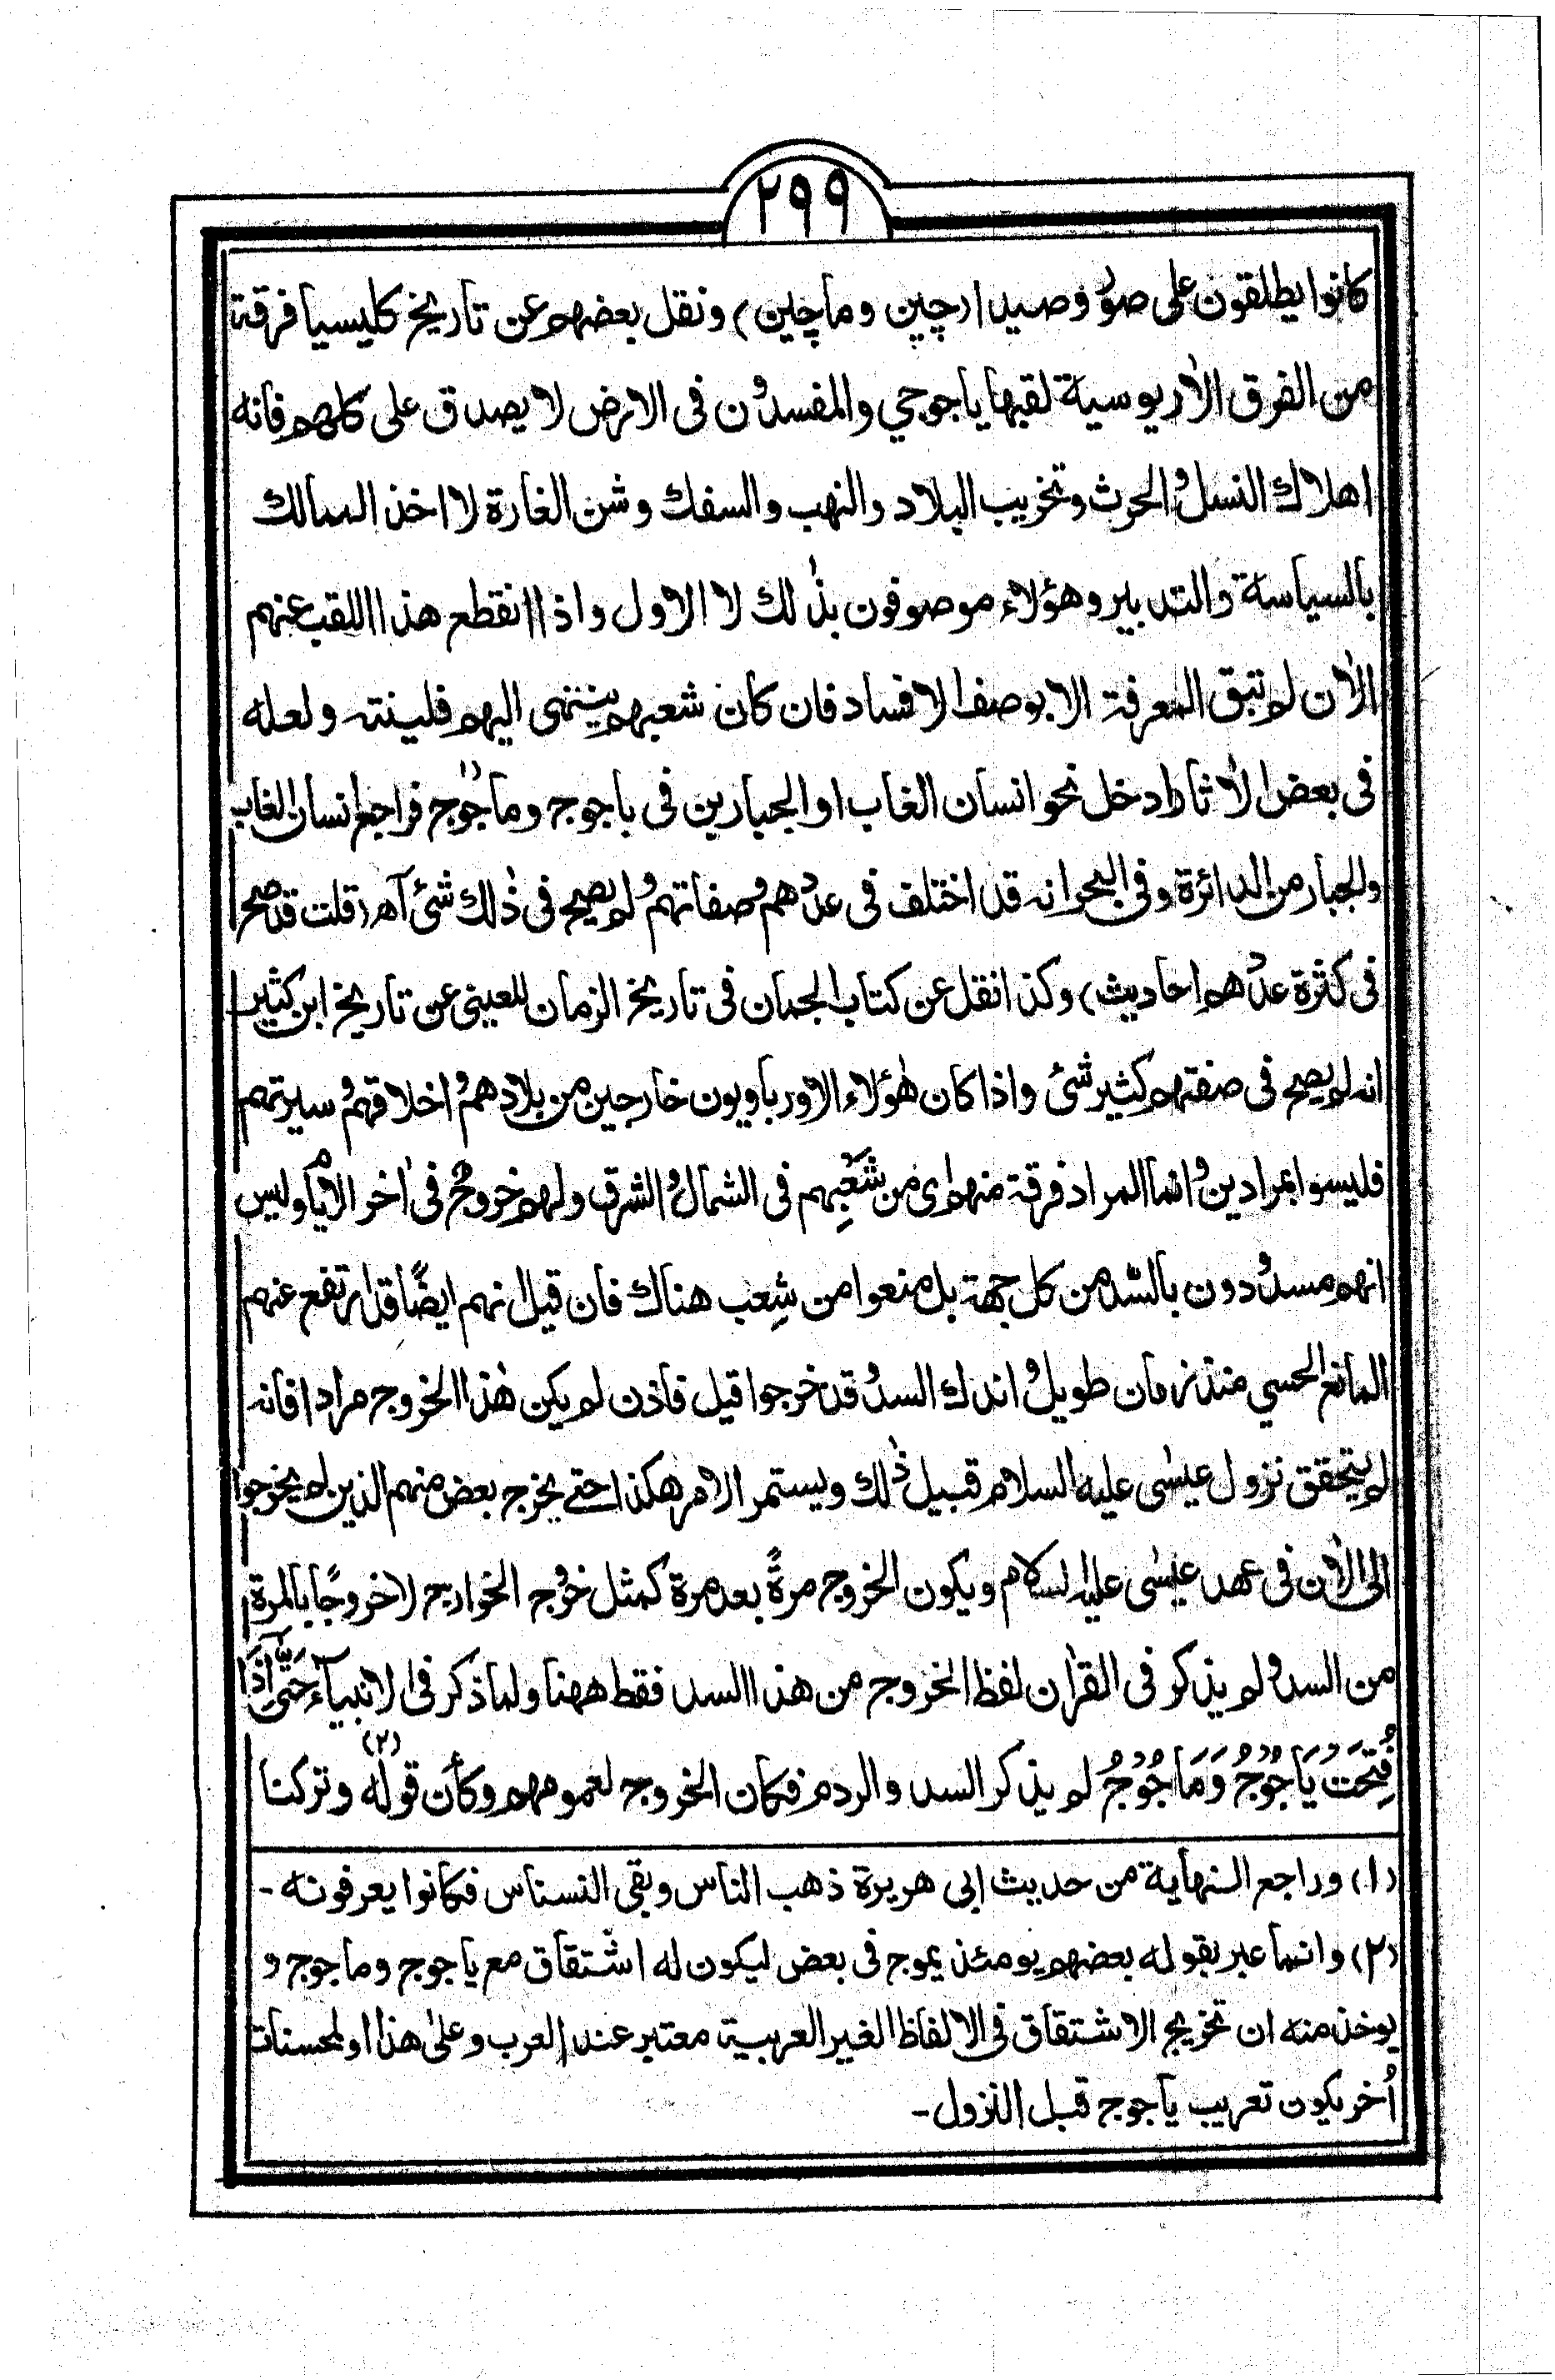 ٢٩٩
كانوا يطلقون على صوُر وصيدا (چين وماچين) ونقل بعضهم عن تاريخ كليسيا فرقة
من الفرق الأريوسية لقبها ياجوجي والمفسدون فى الارض لا يصدق على كلهم فانه
اهلاك النسل والحرث وتخريب البلاد والنهب والسفك وشن الغارة لا اخذ الممالك
بالسياسة والتدبير وهؤلاء موصوفون بذٰلك لا الاول واذا انقطع هذا اللقب عنهم
الأن لم تبق المعرفة الا بوصف الافساد فان كان شعبهم ينتمى اليهم فلينته ولعله
فى بعض الأثار ادخل نحو انسان الغاب او الجبارين فى ياجوج وماجوج (١) فراجع انسان الغاب
والجبار من الدائرة وفى البحر انه قد اختلف فى عددهم وصفاتهم ولم يصح فى ذٰلك شئ آه (قلت قد صح
فى كثرة عددهم احاديث) وكذا نقل عن كتاب الجمان فى تاريخ الزمان للعينى عن تاريخ ابن كثير
انه لم يصح فى صفتهم كثير شئ واذا كان هٰؤلاء الاورباويون خارجين من بلادهم واخلاقهم وسيرتهم
فليسوا بمرادين وانما المراد فرقة منهم اى من شَعْبِهم فى الشمال والشرق ولهم خروج فى اٰخر الايام وليس
انهم مسدودون بالسّد من كل جهة بل منعوا من شِعب هناك فان قيل انهم ايضًا قد ارتفع عنهم
المانع الحسي منذ زمان طويل واندك السد وقد خرجوا قيل فاذن لم يكن هٰذا الخروج مرادا فانه
لم يتحقق نزول عيسٰى عليه السلام قبيل ذٰلك ويستمر الامر هكذا حتے يخرج بعض منهم الذين لم يخرجوا
الى الأن فى عهد عيسٰى عليه السلام ويكون الخروج مرةً بعد مرة كمثل خروج الخوارج لا خروجًا بالمرة
من السد ولم يذكر فى القراٰن لفظ الخروج من هذا السد فقط ههنا ولما ذكر فى الانبياء حَتّٰى اِذَا
فُتِحَتْ يَاْجُوْجُ وَمَاْجُوْجُ لم يذكر السد والردم فكان الخروج لعمومهم وكأن قوله (٢) وتركنا
(١) وراجع النهاية من حديث ابى هريرة ذهب الناس وبقى النسناس فكانوا يعرفونه ـ
(٢) وانما عبر بقوله بعضهم يومئذ يموج فى بعض ليكون له اشتقاق مع ياجوج وماجوج و
يوخذ منه ان تخريج الاشتقاق فى الالفاظ الغير العربية معتبر عند العرب وعلىٰ هذا او لمحسنات
اُخر يكون تعريب ياجوج قبل النزول ـ